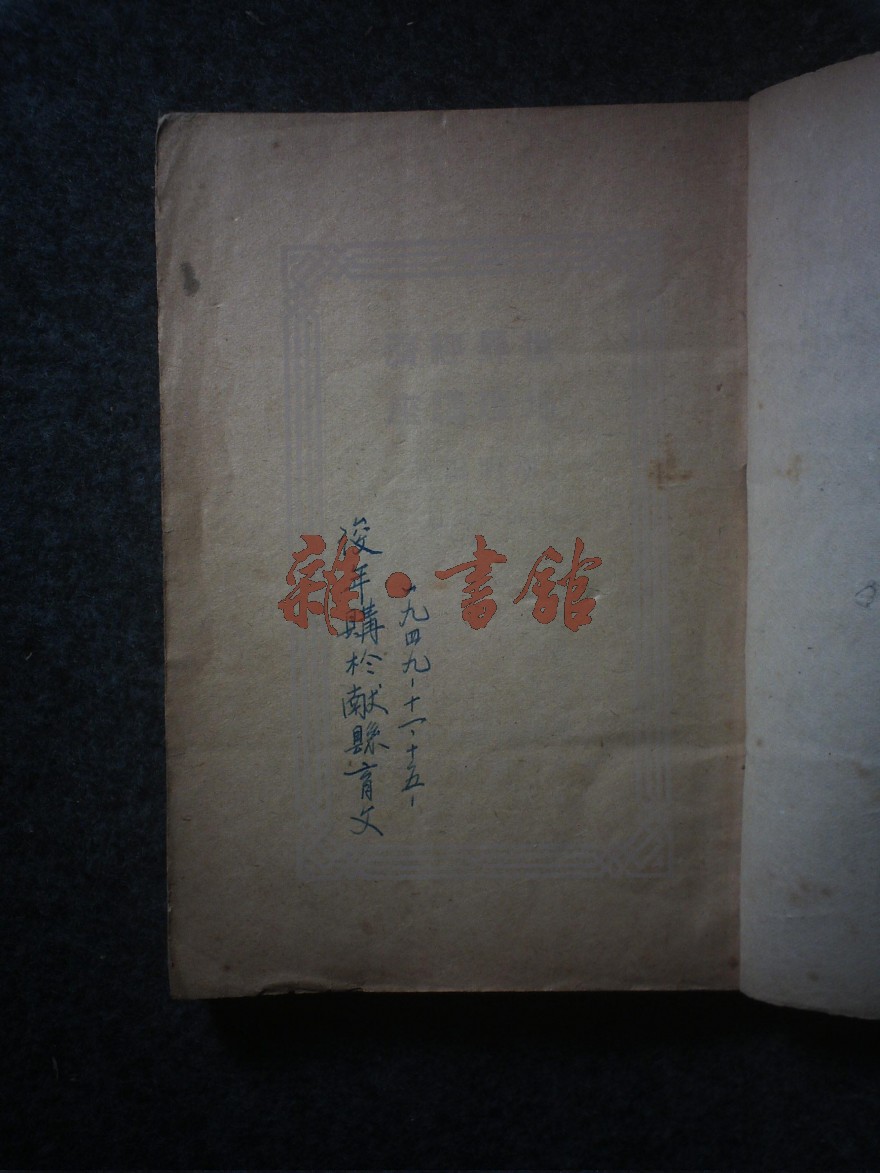 一九四九-十一、十五-
俊年購於献縣育文
雜·書館